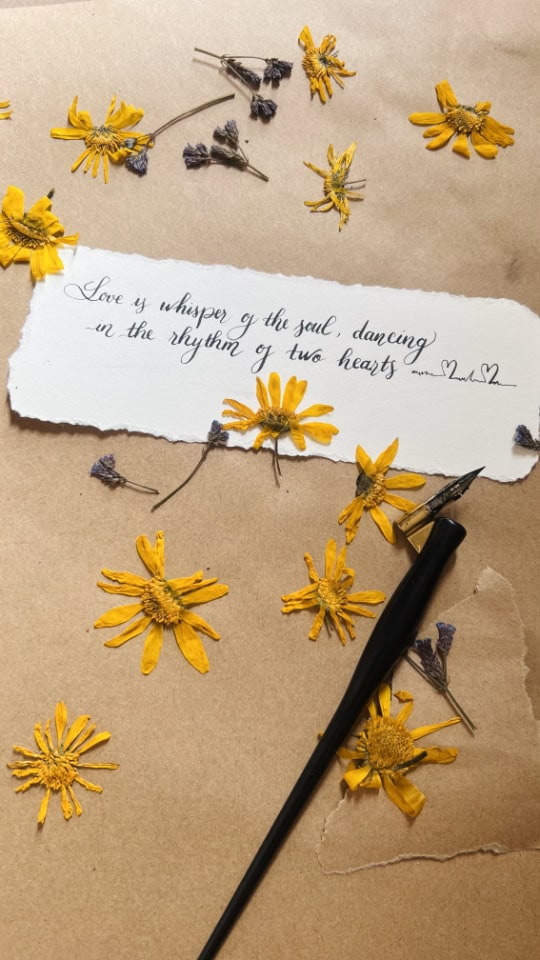 Love is whisper of the soul, dancing
in the rhythm of two hearts